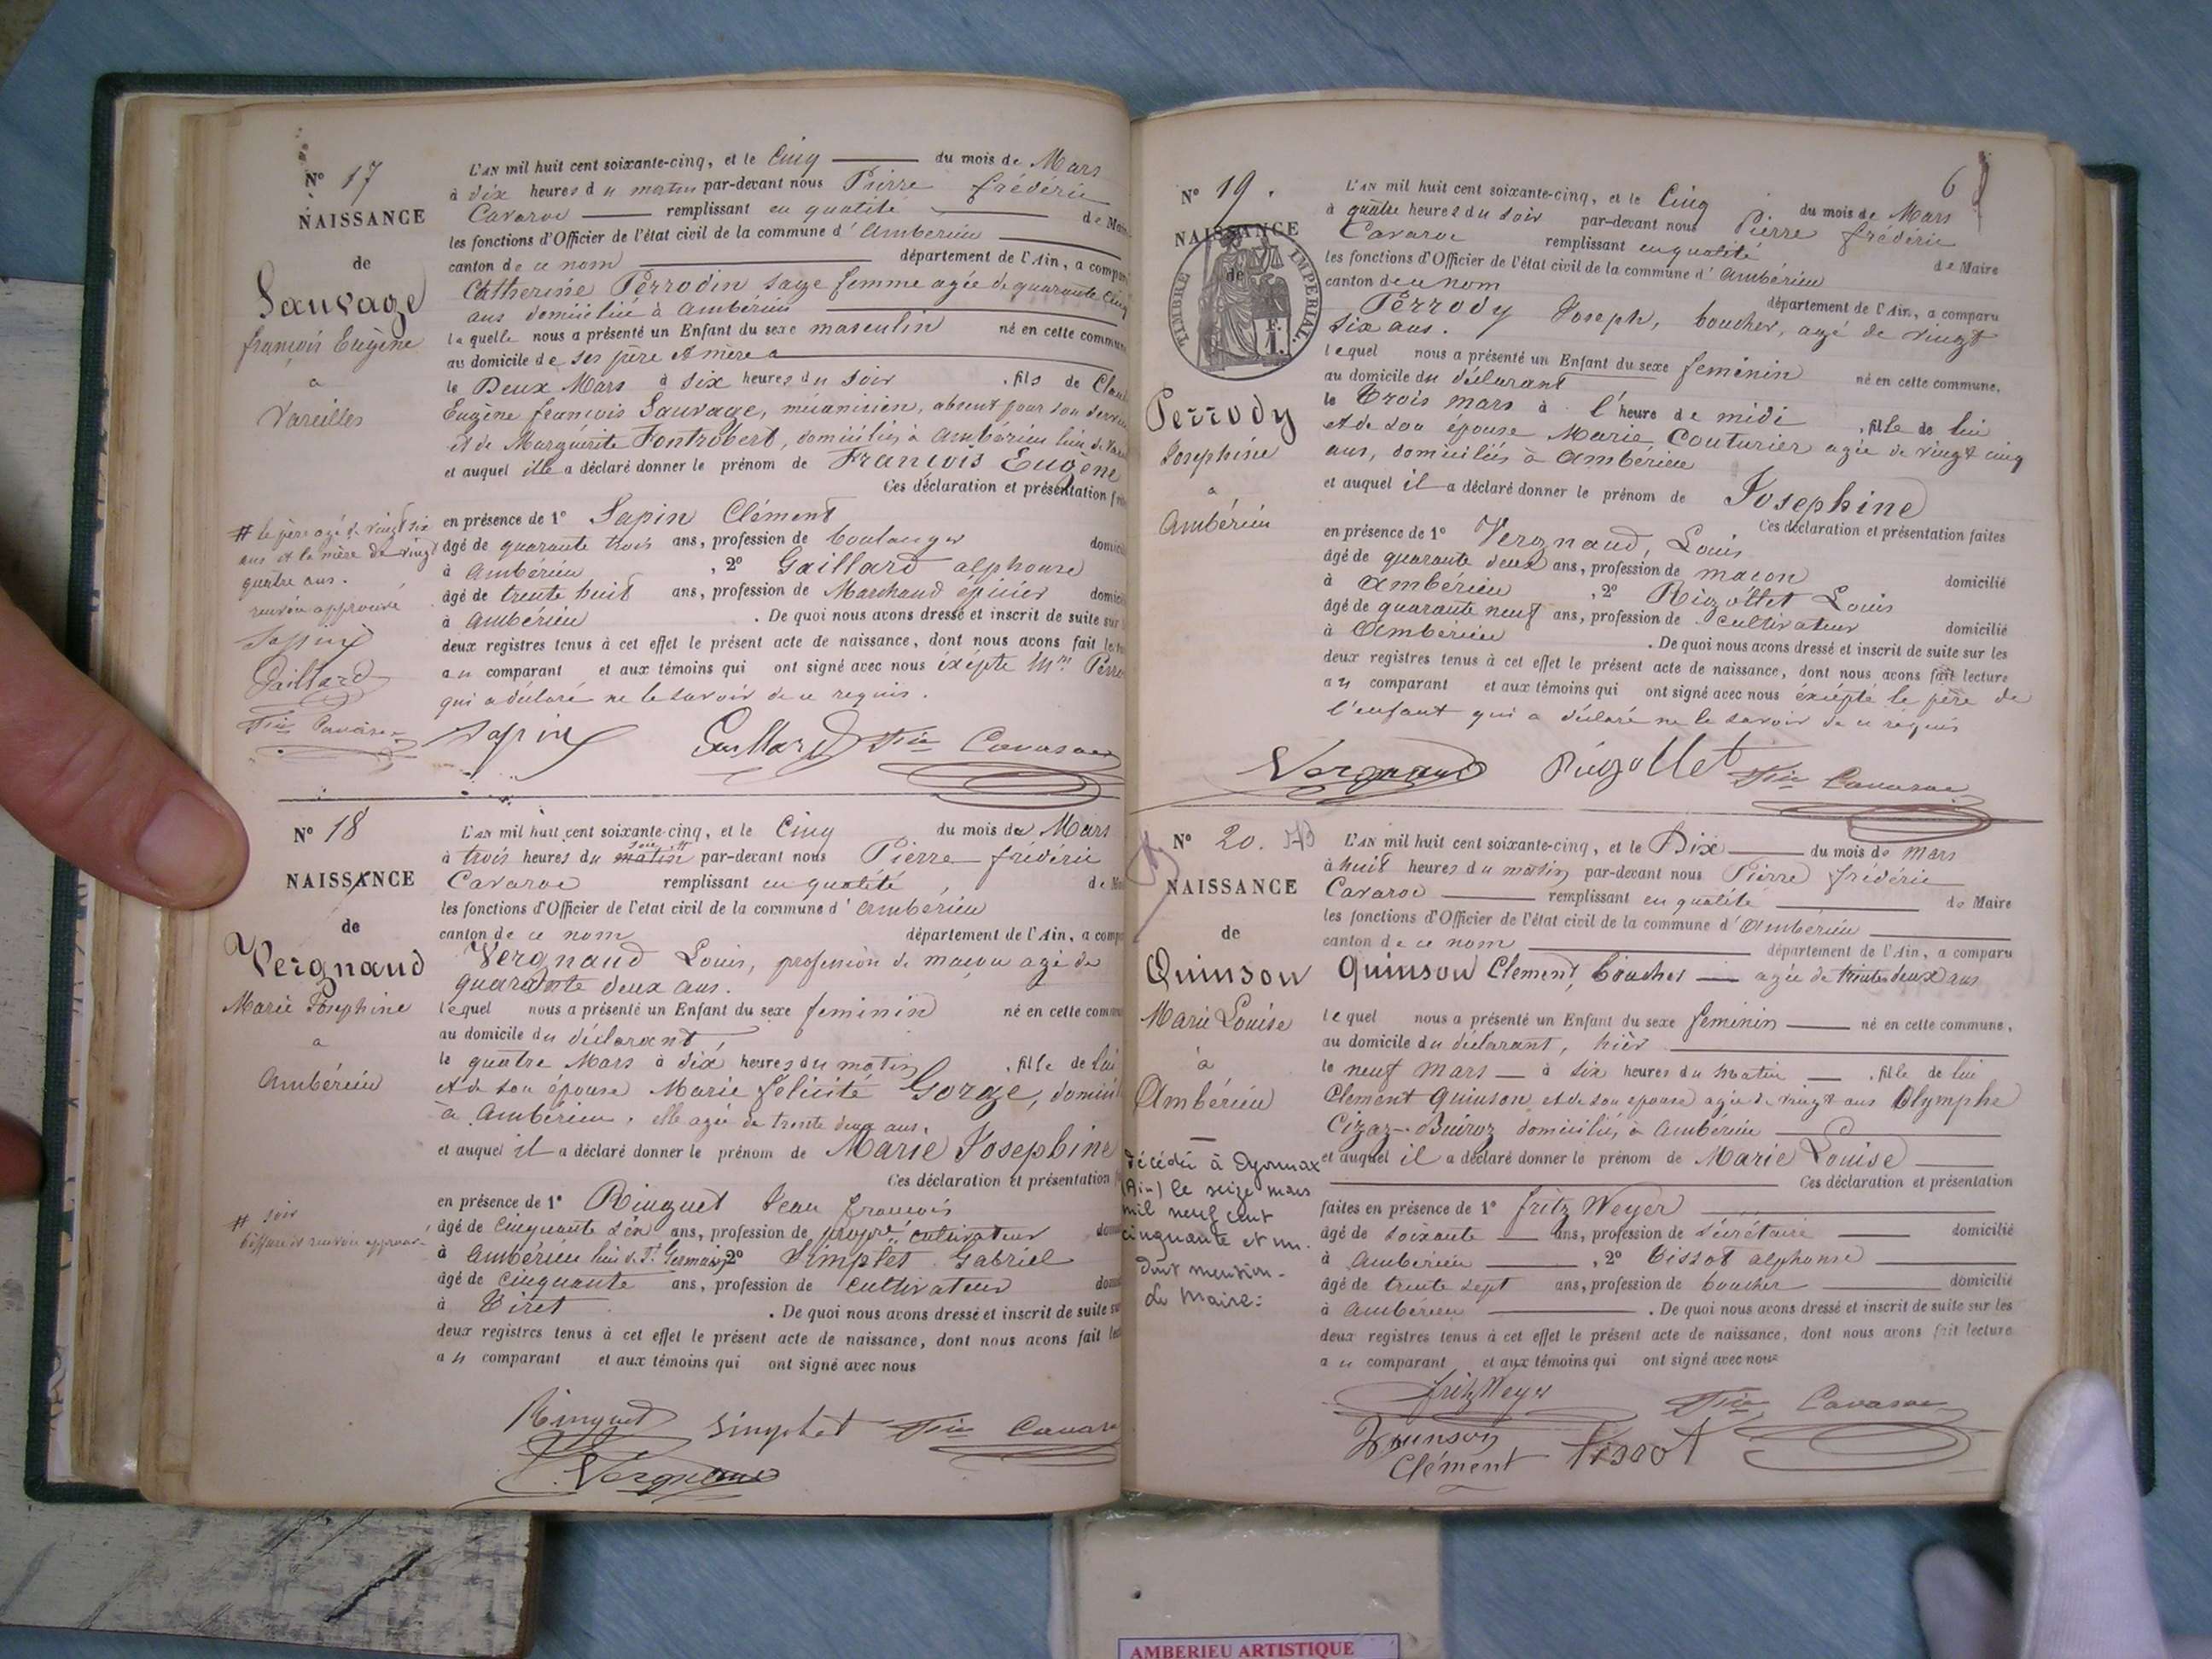 N° 17
NAISSANCE
de
Sauvage
françois Eugène
a
Vareilles
# le père agé de vingt six
ans et la mère de vingt
quatre ans.
renvoi approuvé
Sapin
Gaillard
L'AN mil huit cent soixante-cinq, et le Cinq du mois de Mars
à dix heures du matin par-devant nous Pierre frédéric
Cavaroc remplissant en qualité de Maire
les fonctions d'Officier de l'état civil de la commune d'Ambérieu
canton de ce nom département de l'Ain, a comparu
Catherine Perrodin sage femme agée de quarante cinq
ans domiciliée à Ambérieu
laquelle nous a présenté un Enfant du sexe masculin né en cette commune
au domicile de ses père et mère
le Deux Mars à six heures du soir, fils de
Eugène françois Sauvage, mécanicien, absent pour son
et de Marguerite Fontrobert, domiciliés à Ambérieu lieu de
et auquel elle a déclaré donner le prénom de François Eugène
Ces déclaration et présentation
en présence de 1° Sapin Clément
âgé de quarante trois ans, profession de boulanger
à Ambérieu, 2° Gaillard alphonse
âgé de trente huit ans, profession de Marchand épicier
à Ambérieu. De quoi nous avons dressé et inscrit de suite sur
deux registres tenus à cet effet le présent acte de naissance, dont nous avons fait
au comparant et aux témoins qui ont signé avec nous excépté Mme
qui a déclaré ne le savoir de ce requis.
Sapin Gaillard Fric Cavaroc
N° 18
NAISSANCE
de
Vergnaud
Marie Josephine
a
Ambérieu
# soir
L'AN mil huit cent soixante-cinq, et le Cinq du mois de Mars
soir #
à trois heures du matin par-devant nous Pierre frédéric
Cavaroc remplissant en qualité
les fonctions d'Officier de l'état civil de la commune d'Ambérieu
canton de ce nom département de l'Ain, a
Vergnaud Louis, profession de maçon agé de
quarante deux ans.
lequel nous a présenté un Enfant du sexe feminin né en cette
au domicile du déclarant,
le quatre Mars à dix heures du matin, fille de lui
et de son épouse Marie félicité Gorge,
à Ambérieu, elle agée de trente deux ans,
et auquel il a déclaré donner le prénom de Marie Josephine
Ces déclaration et présentation
en présence de 1° Ringuet Jean françois
âgé de cinquante ans, profession de cultivateur
à Ambérieu lieu de St Germain, 2° Simplet Gabriel
âgé de cinquante ans, profession de cultivateur
à Tiret. De quoi nous avons dressé et inscrit de suite
deux registres tenus à cet effet le présent acte de naissance, dont nous avons fait
au comparant et aux témoins qui ont signé avec nous
Ringuet Simplet Fric
Vergnaud
6
N° 19.
NAISSANCE
de
TIMBRE IMPERIAL
1 F.
Perrody
Josephine
a
Ambérieu
L'AN mil huit cent soixante-cinq, et le Cinq du mois de Mars
à quatre heures du soir par-devant nous Pierre frédéric
Cavaroc remplissant en qualité de Maire
les fonctions d'Officier de l'état civil de la commune d'Ambérieu
canton de ce nom département de l'Ain, a comparu
Perrody Joseph, boucher, agé de vingt
six ans.
lequel nous a présenté un Enfant du sexe feminin né en cette commune,
au domicile du déclarant
le Trois mars à l'heure de midi, fille de lui
et de son épouse Marie Couturier agée de vingt cinq
ans, domiciliés à Ambérieu
et auquel il a déclaré donner le prénom de Josephine
Ces déclaration et présentation faites
en présence de 1° Vergnaud, Louis
âgé de quarante deux ans, profession de maçon domicilié
à Ambérieu, 2° Rigollet Louis
âgé de quarante neuf ans, profession de cultivateur domicilié
à Ambérieu. De quoi nous avons dressé et inscrit de suite sur les
deux registres tenus à cet effet le présent acte de naissance, dont nous avons fait lecture
au comparant et aux témoins qui ont signé avec nous excépté le père de
l'enfant qui a déclaré ne le savoir de ce requis
Vergnaud Rigollet Fric Cavaroc
N° 20.
NAISSANCE
de
Quinson
Marie Louise
à
Ambérieu
Décédée à Oyonnax
(Ain) le seize mars
mil neuf cent
cinquante et un.
dont mention.
Le Maire:
L'AN mil huit cent soixante-cinq, et le Dix du mois de mars
à huit heures du matin par-devant nous Pierre frédéric
Cavaroc remplissant en qualité de Maire
les fonctions d'Officier de l'état civil de la commune d'Ambérieu
canton de ce nom département de l'Ain, a comparu
Quinson Clément, boucher agée de trente deux ans
lequel nous a présenté un Enfant du sexe feminin né en cette commune,
au domicile du déclarant, hier
le neuf mars à six heures du matin, fille de lui
Clément Quinson et de son épouse agée de vingt ans Olymphe
domiciliés à Ambérieu
et auquel il a déclaré donner le prénom de Marie Louise
Ces déclaration et présentation
faites en présence de 1° fritz Weyer
âgé de soixante ans, profession de sécrétaire domicilié
à Ambérieu, 2° Tissot alphonse
âgé de trente sept ans, profession de boucher domicilié
à Ambérieu. De quoi nous avons dressé et inscrit de suite sur les
deux registres tenus à cet effet le présent acte de naissance, dont nous avons fait lecture
au comparant et aux témoins qui ont signé avec nous
fritz Weyer Fric Cavaroc
Quinson
Clément Tissot
AMBERIEU ARTISTIQUE